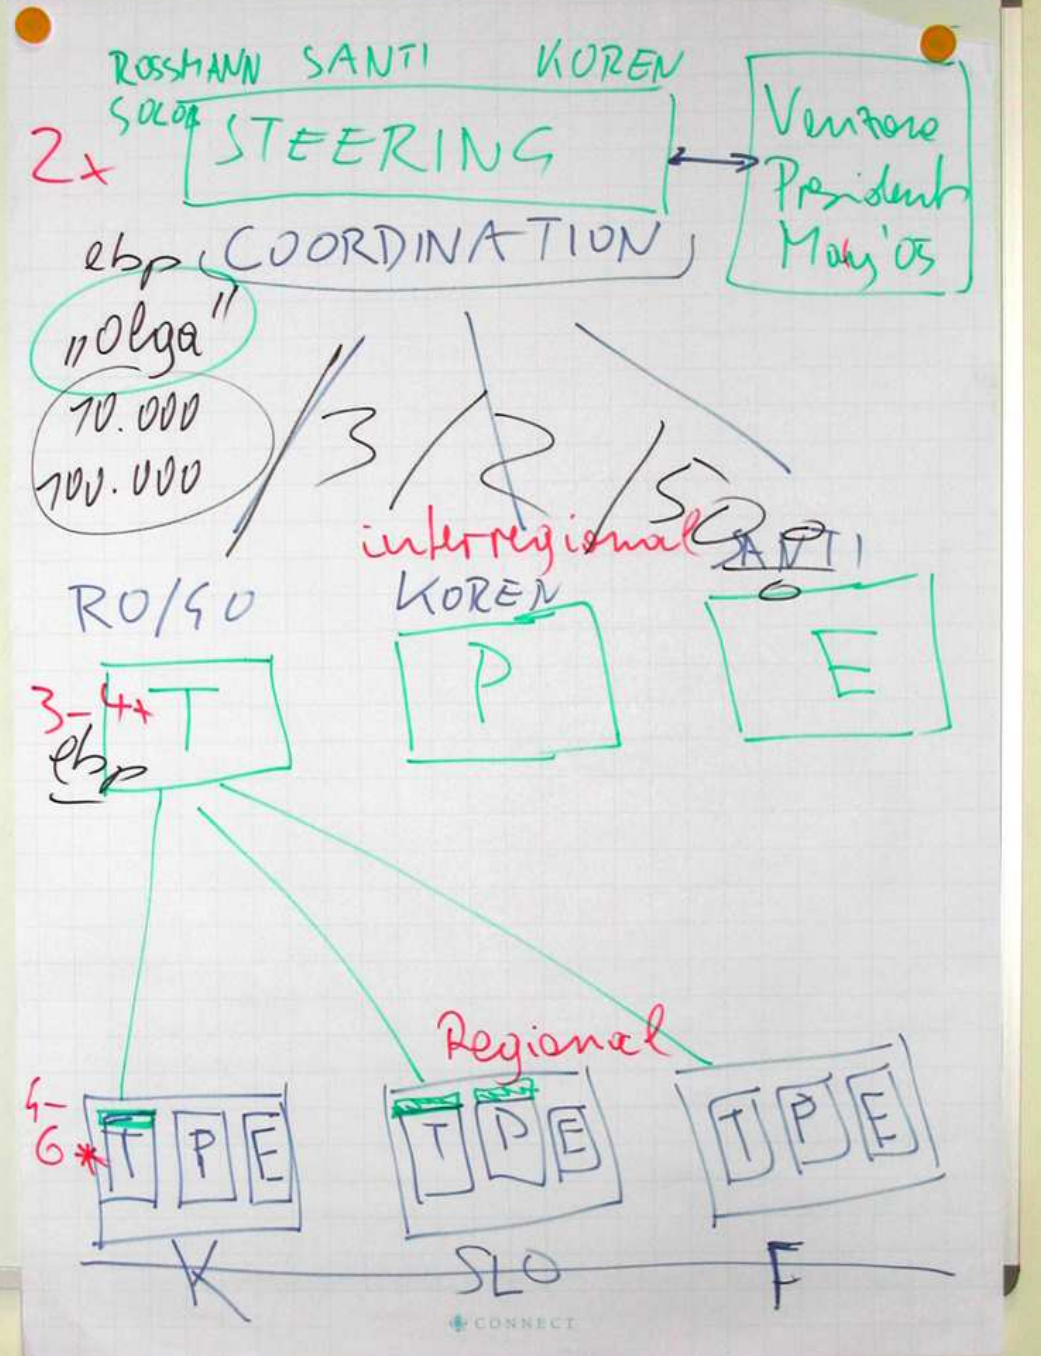 ROSSMANN SANTI KOREN
SOLOR
2x
STEERING
Venzone
President
May '05
ebp COORDINATION
„Olga"
10.000
100.000
/3 /2 /5
interregional
SANTI
RO/SO
KOREN
T
P
E
3-4x
ebp
Regional
4-
6 *
T P E
T P E
T P E
K SLO F
CONNECT